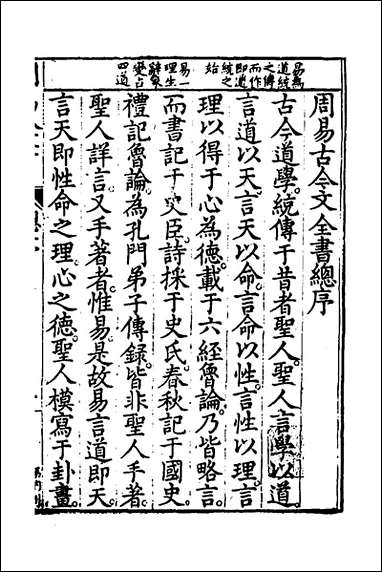 周易古今文全書總序
古今道學統傳于昔者聖人聖人言學以道
言道以天言天以命言命以性言性以理言
理以得于心為德載于六經魯論乃皆略言
而書記于史臣詩採于史氏春秋記于國史
禮記魯論為孔門弟子傳錄皆非聖人手著
聖人詳言又手著者惟易是故易言道即天
言天即性命之理心之德聖人模寫于卦畫
易為
道統
之傳
而作
即道
統之
始
易一
理生
辭象
變占
四道